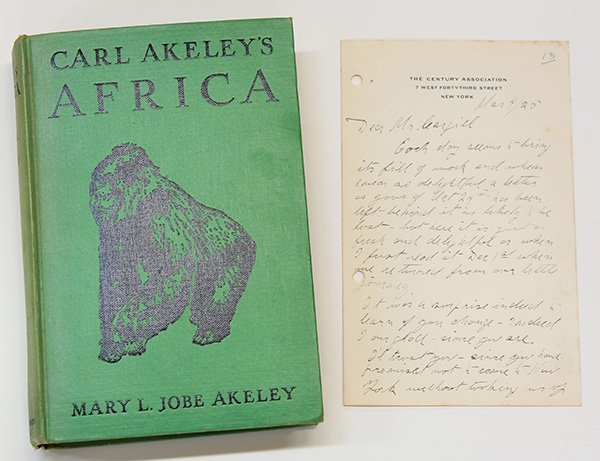 CARL AKELEY'S
AFRICA
MARY L. JOBE AKELEY
13
THE CENTURY ASSOCIATION
7 WEST FORTY-THIRD STREET
NEW YORK
Mar 9/25
Dear Mr. Cargill
Each day seems to bring
its fill of work and when
so delightful a letter
as yours of Oct 29th has been
left behind it is likely to be
lost - but here it is just as
fresh and delightful as when
I first read it Dec 1st when
we returned from our little
journey.
It was a surprise indeed to
learn of your change - Indeed
I am glad - since you are.
I'll trust you - since you have
promised not to come to New
York without looking us up